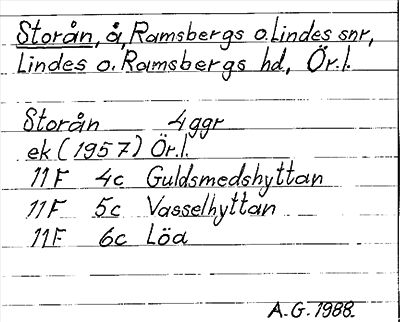 Storån, å, Ramsbergs o. Lindes snr,
Lindes o. Ramsbergs hd, Ör.l.
Storån 4 ggr
ek (1957) Ör.l.
11F 4c Guldsmedshyttan
11F 5c Vasselhyttan
11F 6c Löa
A.G. 1988.